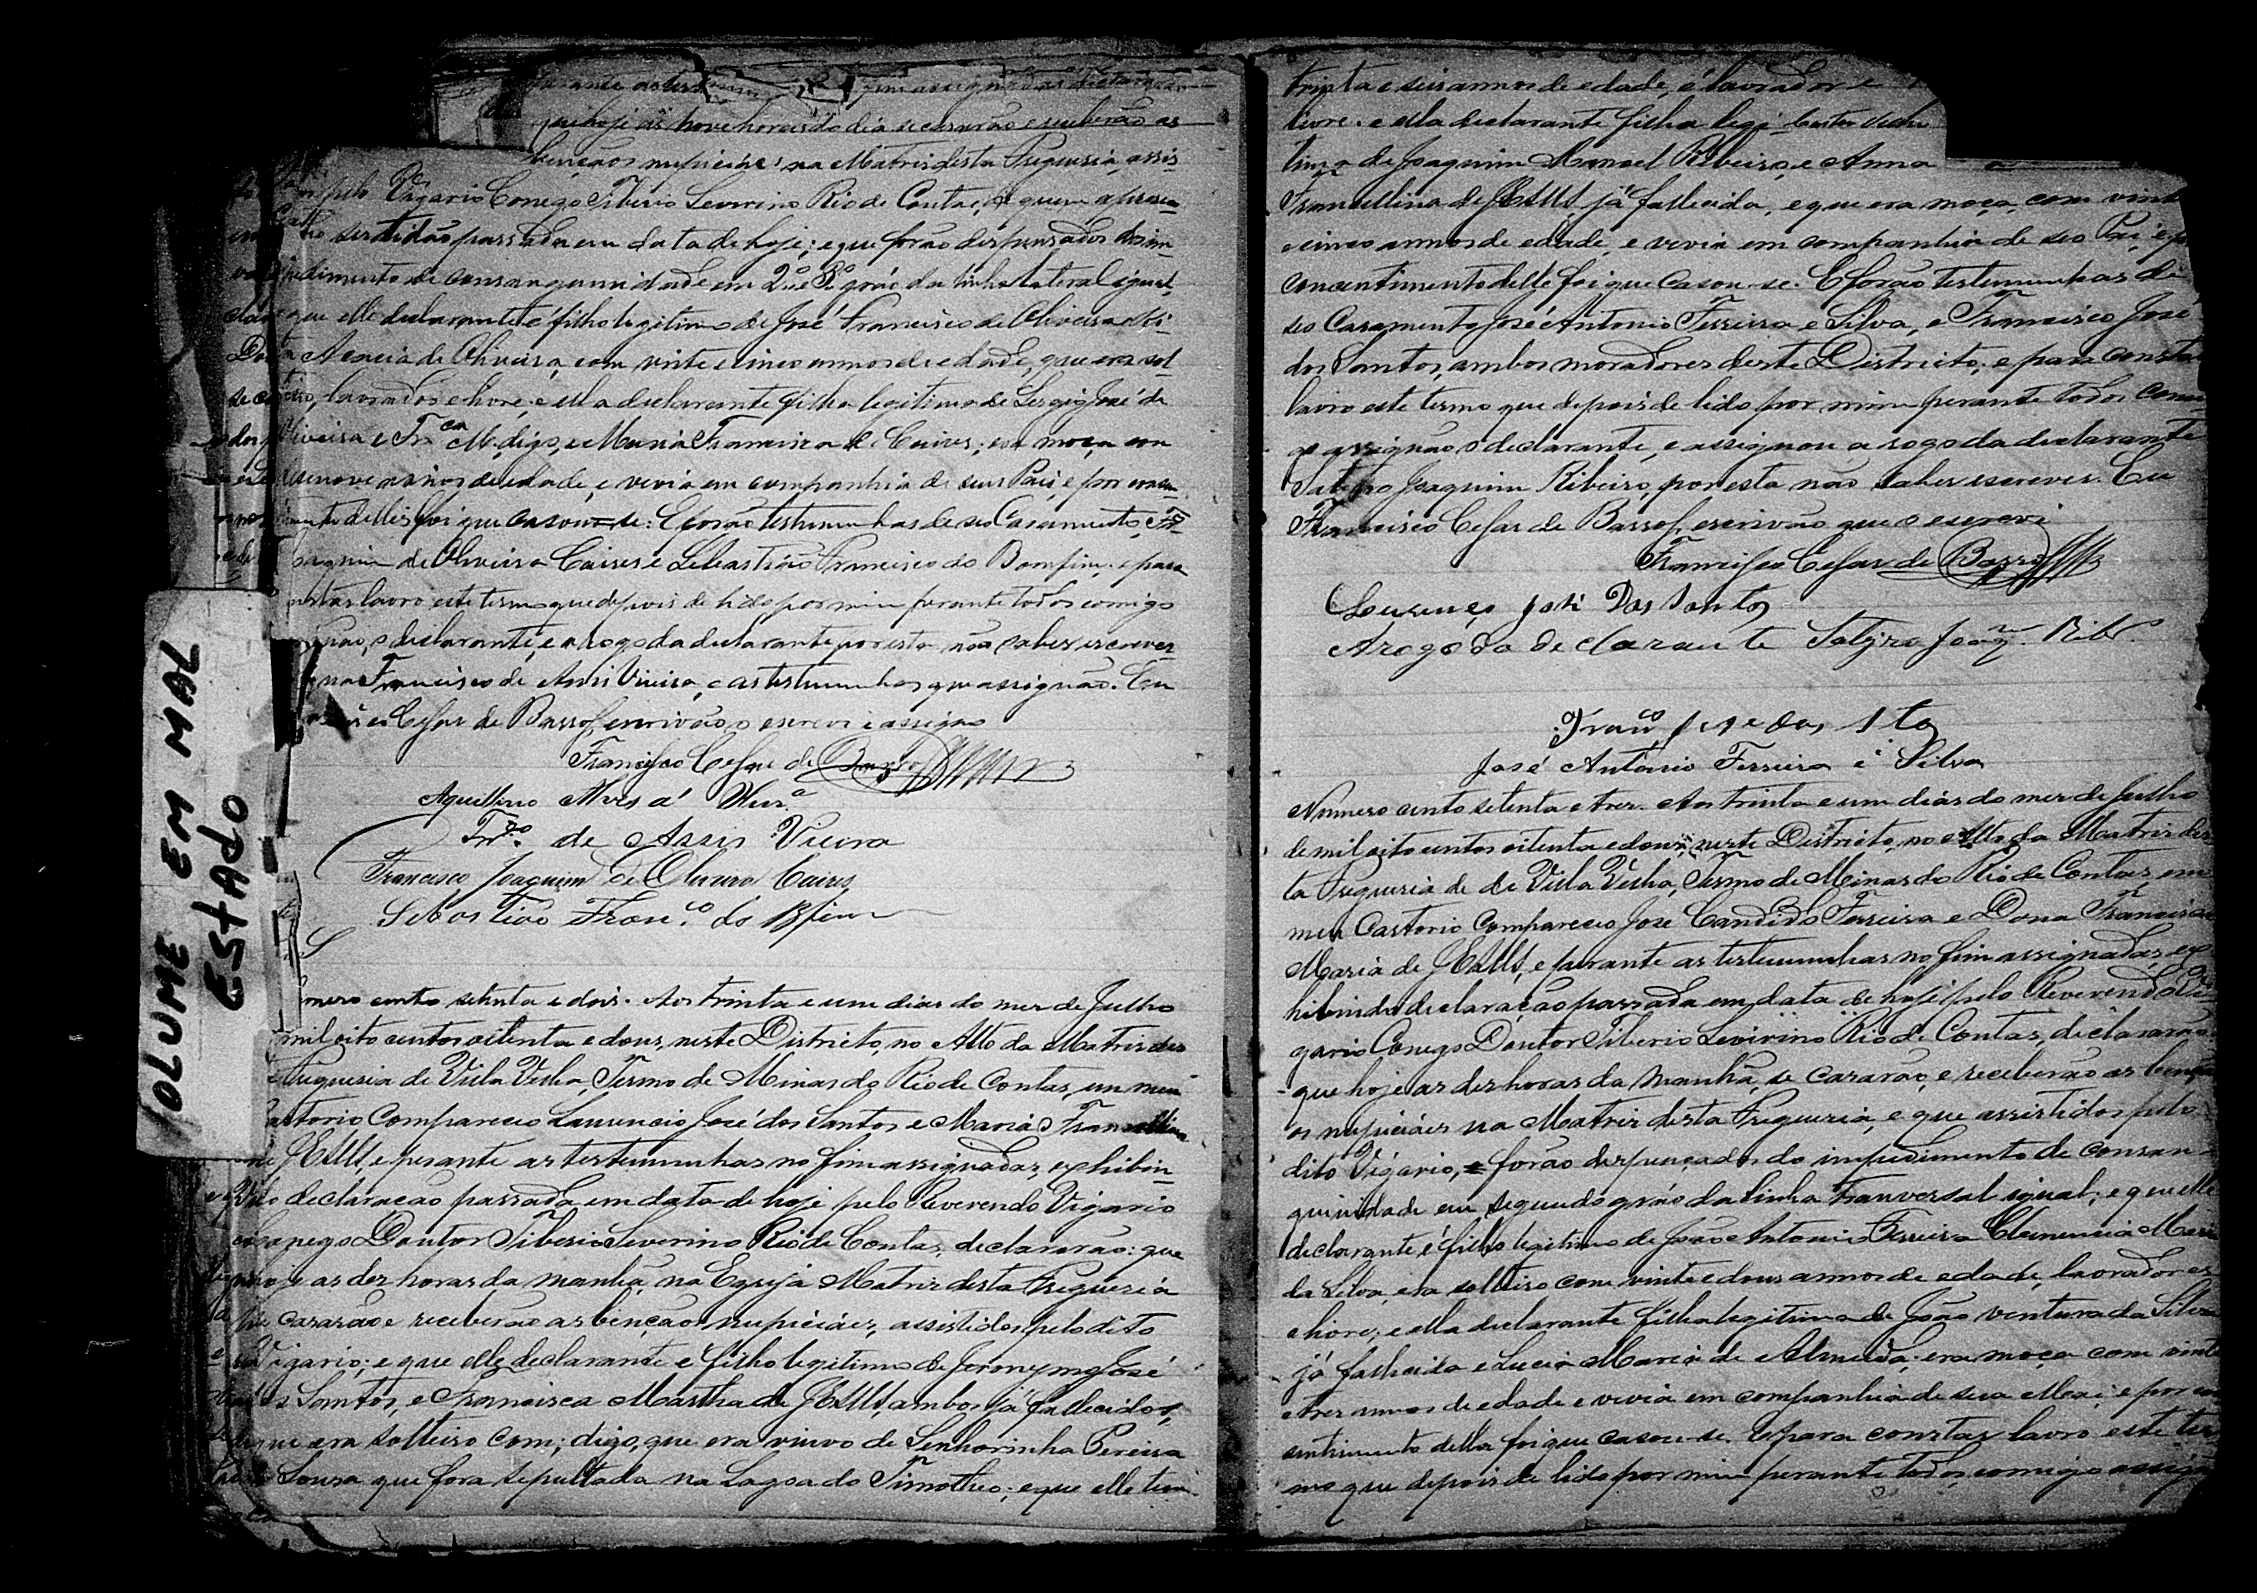 perante as testemunhas no fim assignadas declararão
que hoje ás nove horas do dia se casarão e receberão as
bençãos nupciáes na Matris desta Freguesia, assis
pelo Vigario Conego Tiberio Severino Rio de Contas, de quem apresen
certidão passada em data de hoje; e que forão dispensados do im
pedimento de consanguinidade em 2º e 3º gráo da linha lateral igual,
que elle declarante é filho legitimo de José Francisco de Oliveira e
de Oliveira, com vinte e cinco annos de edade, que era sol
lavrador e livre, e ella declarante filha legitima de Sergio José de
Oliveira e Frca M. digo, e Maria Francisca de Caires, era moça, com
desenove annos de edade, e vivia em companhia de seus Pais, e por consen
timento delles foi que casou-se: E forão testemunhas de seo Casamento, Fr
Joaquim de Oliveira Caires e Sebastião Francisco do Bomfim; e para
constar lavro este termo que depois de lido por mim perante todos comigo
o declarante, e a rogo da declarante por esta não saber escrever
Francisco de Assis Vieira, e as testemunhas que assignão. Eu
Cesar de Barros, escrivão o escrevi e assigno
Francisco Cesar de Barros
Aquillino Alves d' Olivra
Frco de Assis Vieira
Francisco Joaquim de Oliveira Caires
Sebastião Franco do Bfim
VOLUME EM MAL
ESTADO
Numero cento setenta e dois. Aos trinta e um dias do mes de Julho
mil oito centos oitenta e dous, neste Districto, no Alto da Matris des
Freguesia de Villa Velha, Termo de Minas do Rio de Contas, em meu
Cartorio Compareceo Lourenço José dos Santos e Maria Francellina
de JESUS, e perante as testemunhas no fim assignadas, exhibin
do declaração passada em data de hoje pelo Reverendo Vigario
Conego Doutor Tiberio Severino Rio de Contas, declararão: que
hoje as des horas da manhã, na Egreja Matris desta Freguesia
se casarão e receberão as bençãos nupciáes, assistidos pelo dito
Vigario; e que elle declarante é filho legitimo de Jeronymo José
dos Santos, e Francisca Martha de JESUS, ambos já fallecidos,
que era solteiro com; digo, que era viuvo de Senhorinha Pereira
Sousa que fora sepultada na Lagoa do Timotheo; e que elle tem
trinta e seis annos de edade, é lavrador e
livre. e ella declarante filha legi
tima de Joaquim Manoel Ribeiro, e Anna
Francellina de JESUS, já fallecida, e que era moça, com vinte
e cinco annos de edade, e vivia em companhia de seo Pai, e por
concentimento delle foi que casou-se. E forão testemunhas de
seo Casamento José Antonio Ferreira e Silva, e Francisco José
dos Santos, ambos moradores deste Districto; e para constar
lavro este termo que depois de lido por mim perante todos comi
go assignão o declarante, e assignou a rogo da declarante
Satyro Joaquim Ribeiro, por esta não saber escrever. Eu
Francisco Cesar de Barros, escrivão que o escrevi
Francisco Cesar de Barros
Lourenço José Dos Santos
Arogo da declarante Satyro Joaqm Ribro
Franco José dos Stos
José Antonio Ferreira e Silva
Numero cento setenta e tres. Aos trinta e um dias do mes de Julho
de mil oito centos oitenta e dous, neste Districto, no Alto da Matris des
ta Freguesia de de Villa Velha, Termo de Minas do Rio de Contas, em
meu Cartorio Compareceo José Candido Ferreira e Dona Francisca
Maria de JESUS, e perante as testemunhas no fim assignadas, ex
hibindo declaração passada em data de hoje pelo Reverendo Vi
gario Conego Doutor Tiberio Severino Rio de Contas, declararão
que hoje as des horas da manhã, se casarão, e receberão as benção
os nupciáes na Matris desta Freguesia, e que assistidos pelo
dito Vigario, e forão despençados do impedimento de consan
guinidade em segundo gráo da linha tranversal igual; e que elle
declarante é filho legitimo de João Antonio Ferreira Clemencia Maria
da Silva, era solteiro com vinte e dous annos de edade, lavrador
e livre; e ella declarante filha legitima de João Ventura da Silva
já fallecido e Lucia Maria de Almeida; era moça com vinte
e tres annos de edade e vivia em companhia de sua Mãe; e por con
sentimento della foi que casou-se. E para constar lavro este ter
mo que depois de lido por mim perante todos, comigo assig